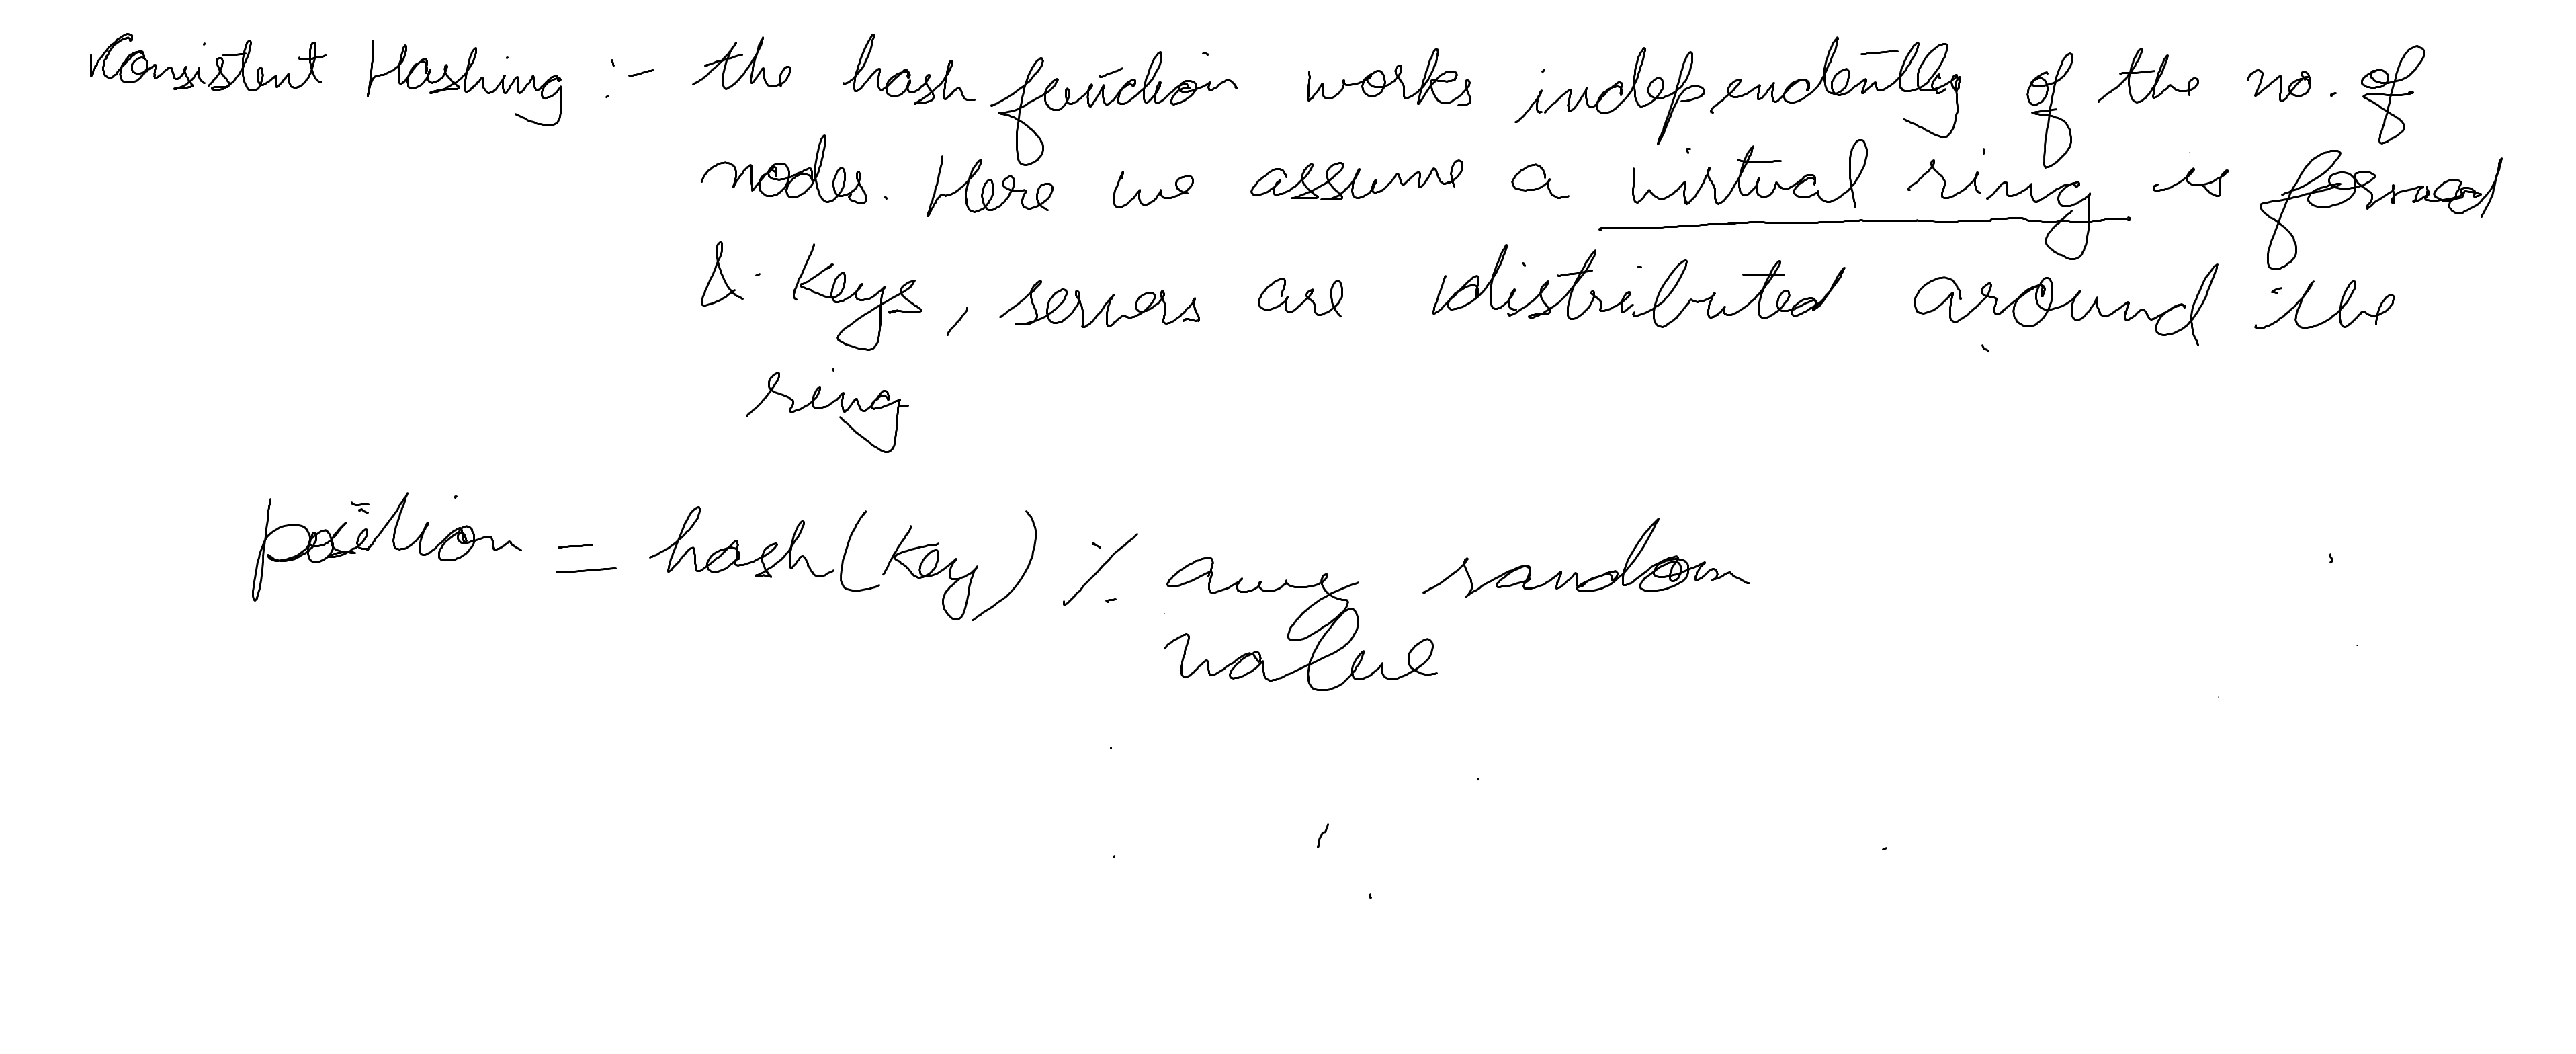 Consistent Hashing :- the hash function works independently of the no. of
nodes. Here we assume a virtual ring is formed
& keys, servers are distributed around the
ring
position = hash(key) % any random
value